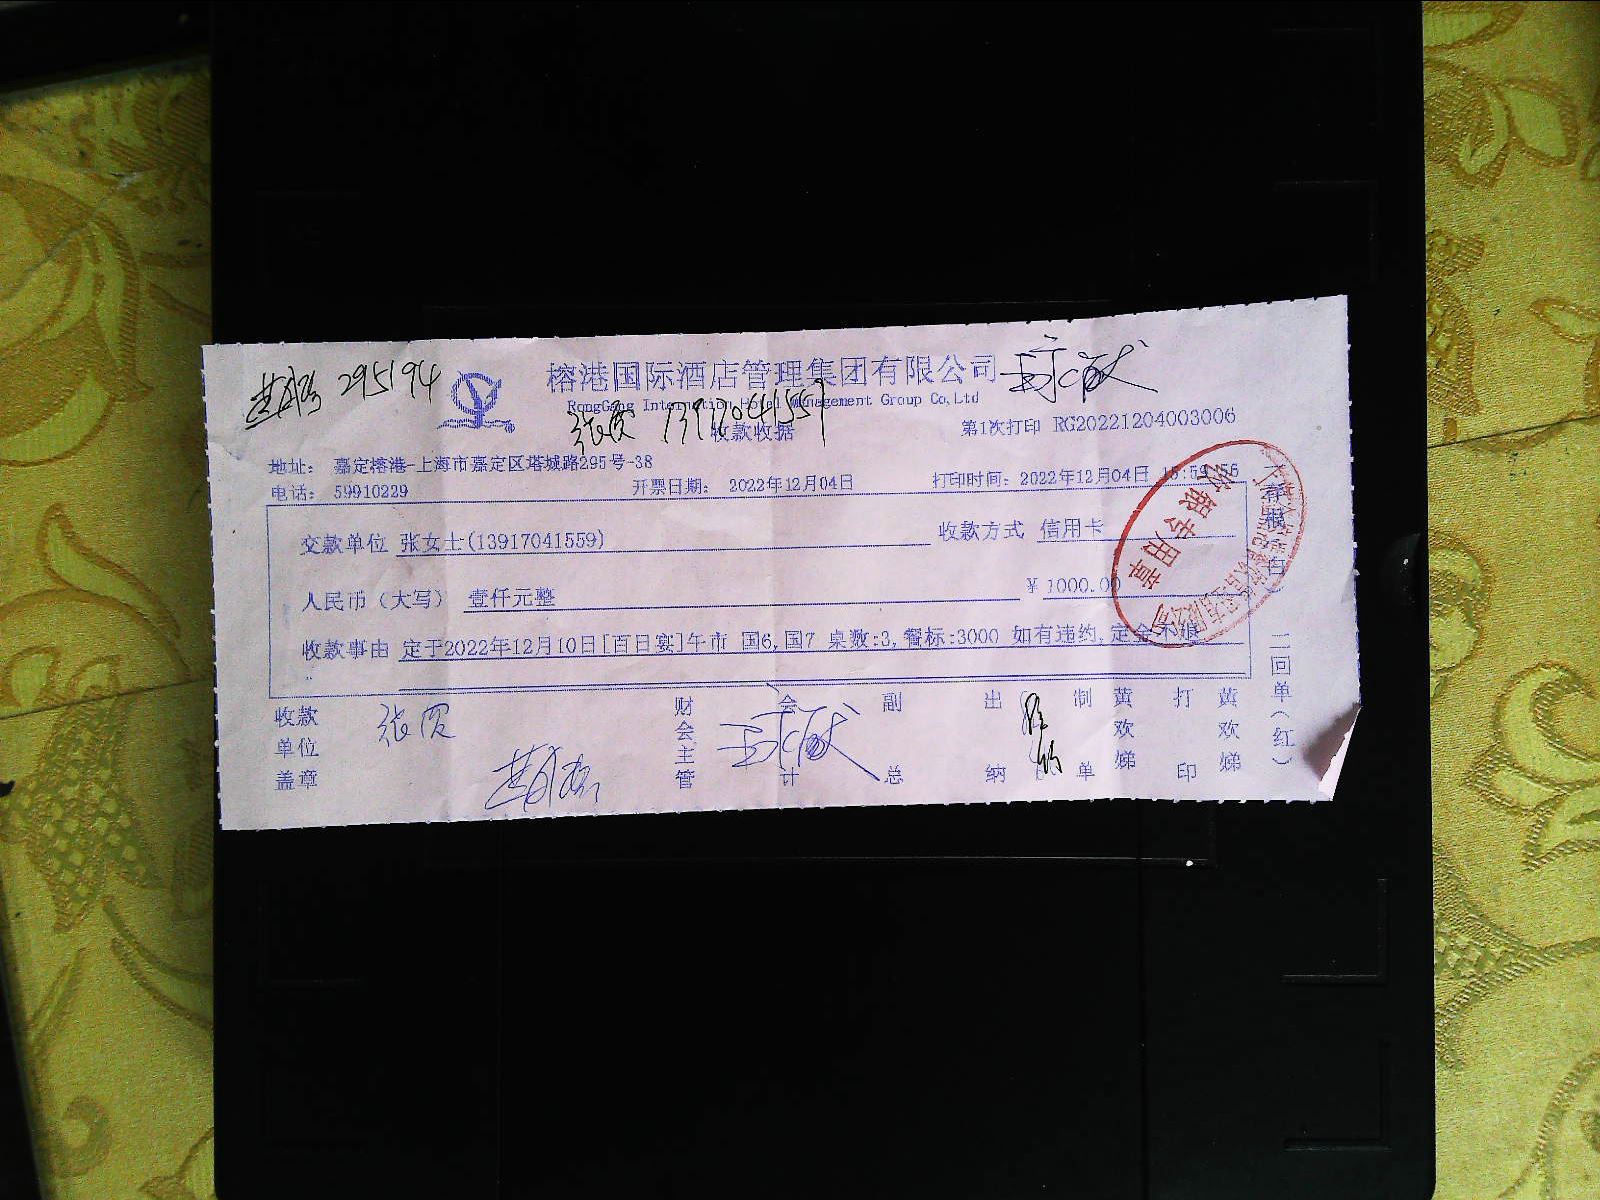 295194
榕港国际酒店管理集团有限公司
RongGang Internation Hotel Management Group Co,Ltd
张 13917041559
收款收据
第1次打印 RG20221204003006
地址: 嘉定榕港-上海市嘉定区塔城路295号-38
电话: 59910229 开票日期: 2022年12月04日 打印时间: 2022年12月04日 15:59:56
交款单位 张女士(13917041559) 收款方式 信用卡
人民币（大写） 壹仟元整 ¥ 1000.00
收款事由 定于2022年12月10日[百日宴]午市 国6,国7 桌数:3,餐标:3000 如有违约,定金不退
收款单位盖章 张 财会主管 会计 副总 出纳 制单 黄欢娣 打印 黄欢娣
二回单(红)
收银专用章